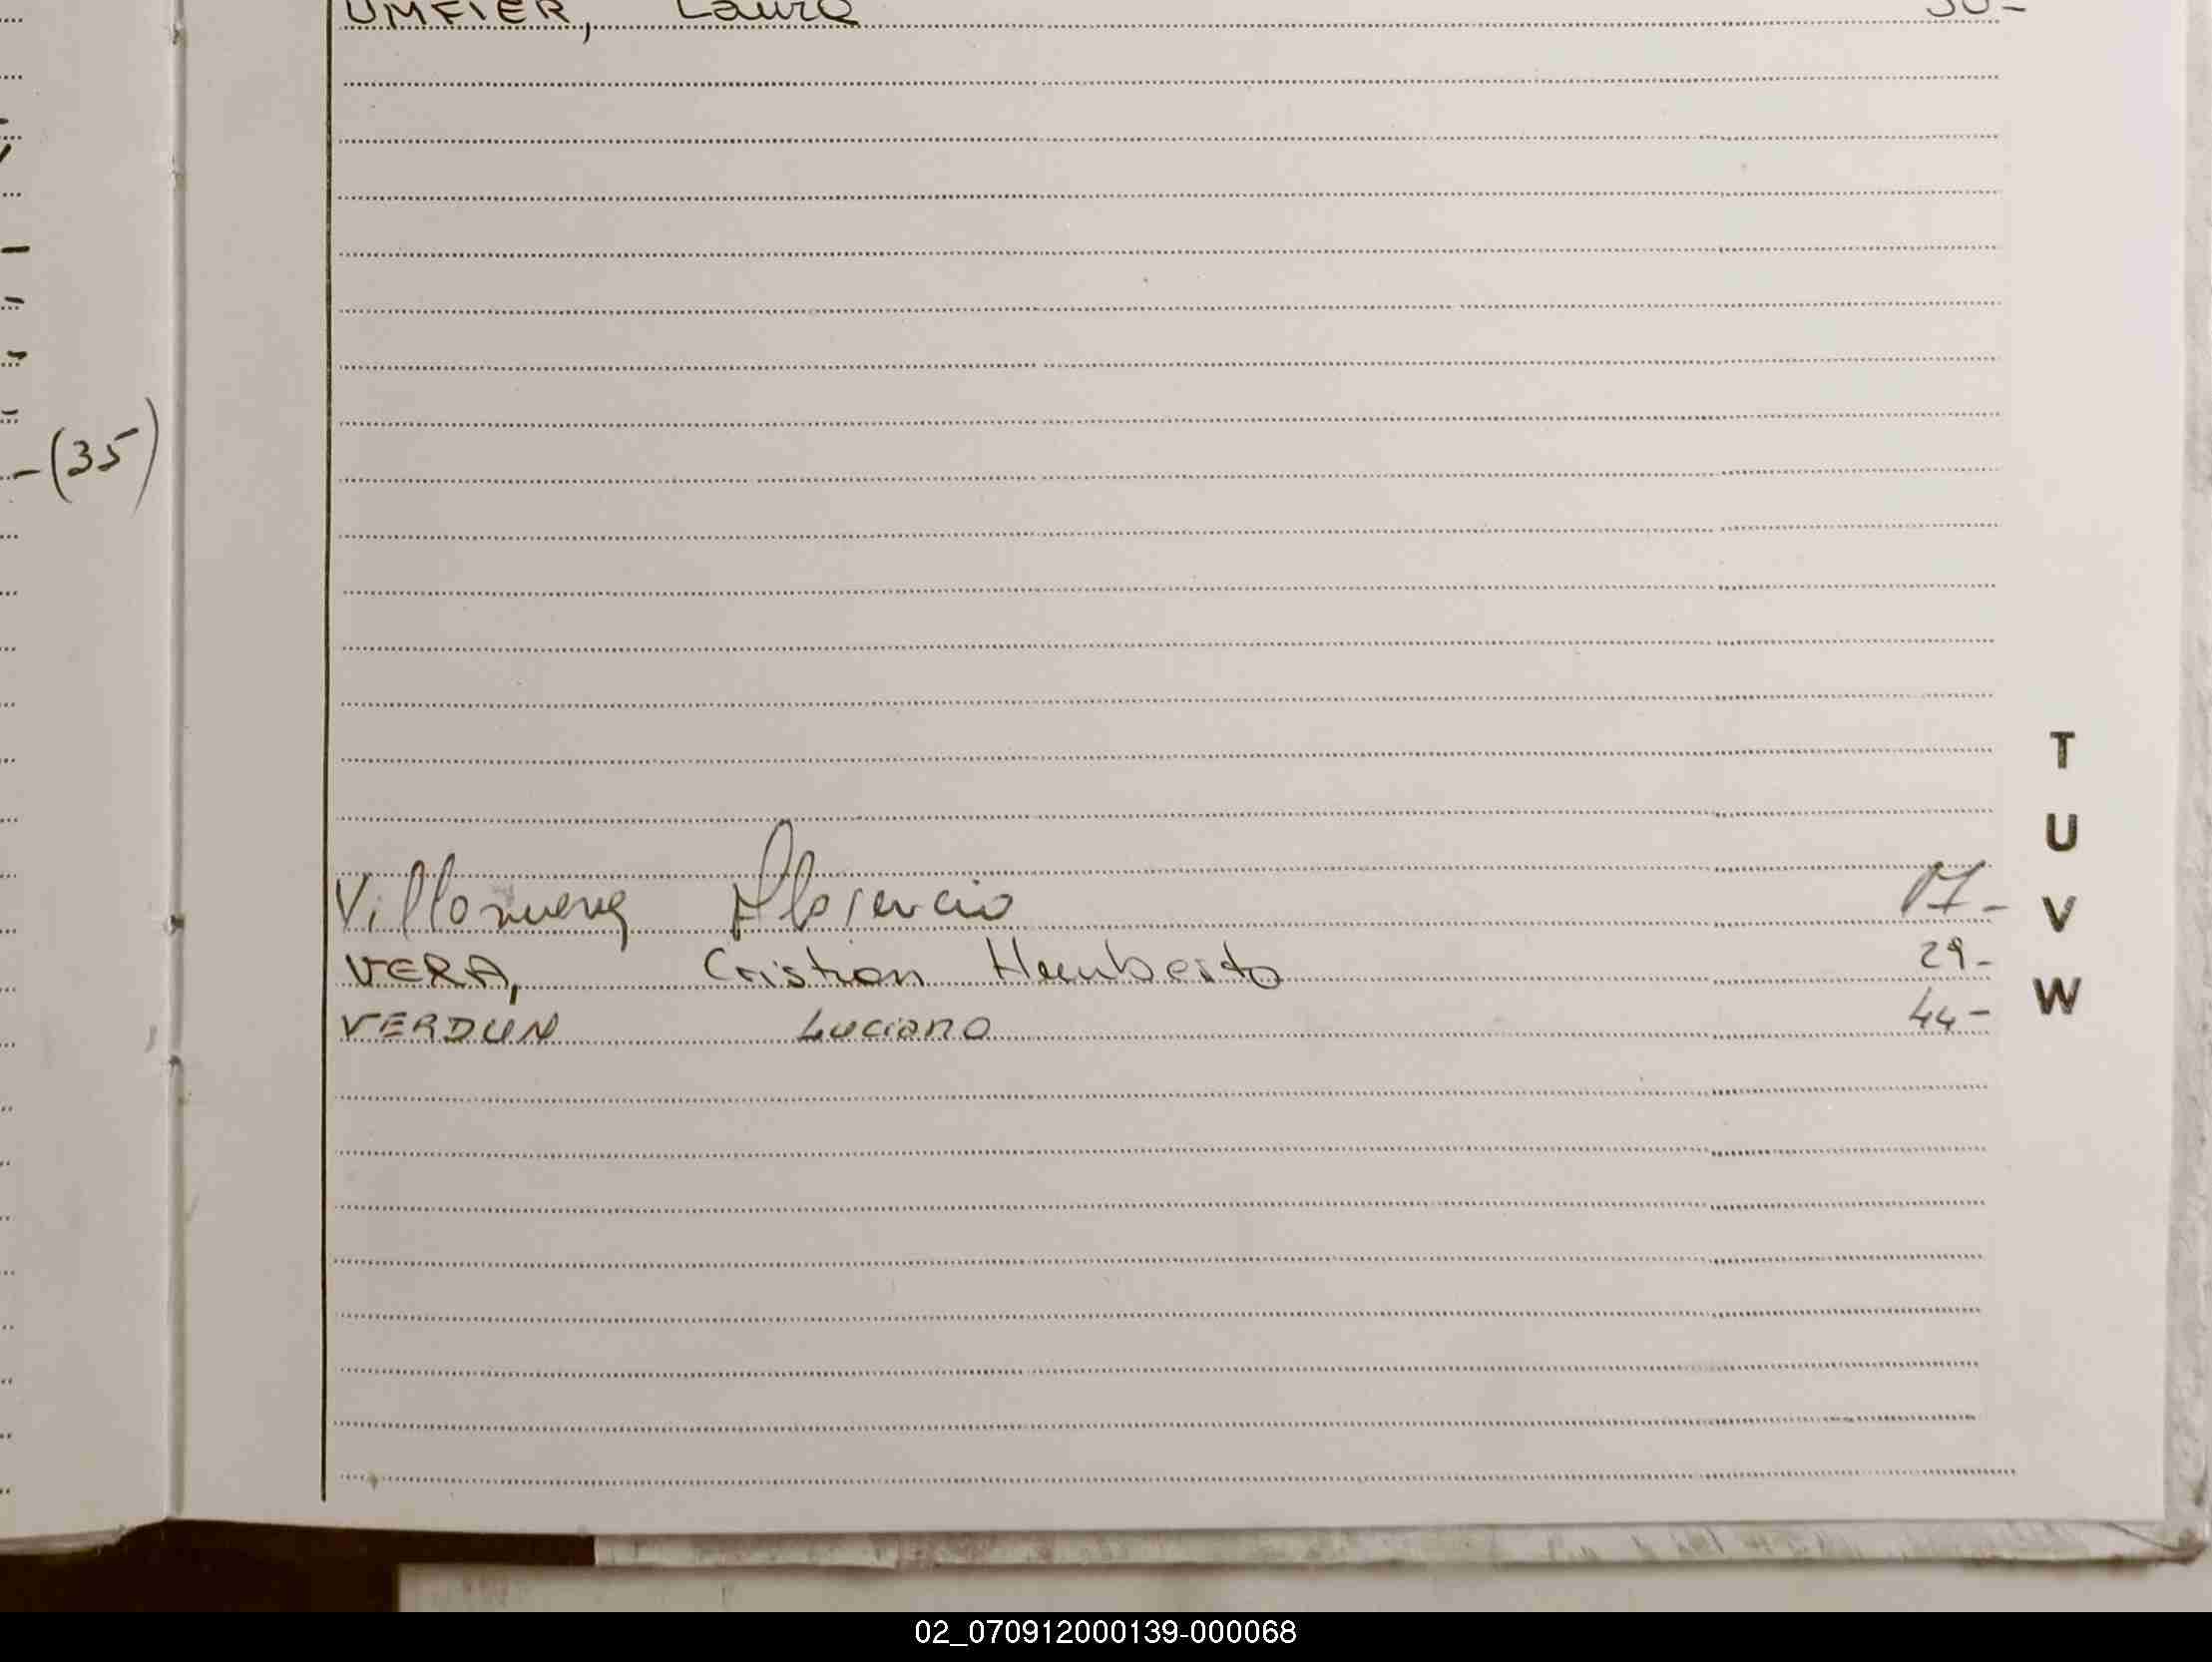 UMFIER, Laura 30-
-(35)
T
U
Villanueva Florencio 17-
V
VERA, Cristian Humberto 29-
W
VERDUN Luciano 44-
02_070912000139-000068